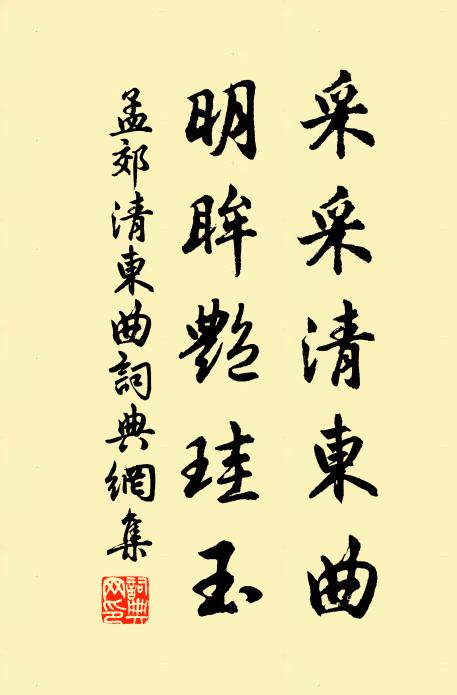 采采清東曲
明眸艷珪玉
孟郊清東曲詞典網集
詞典網印